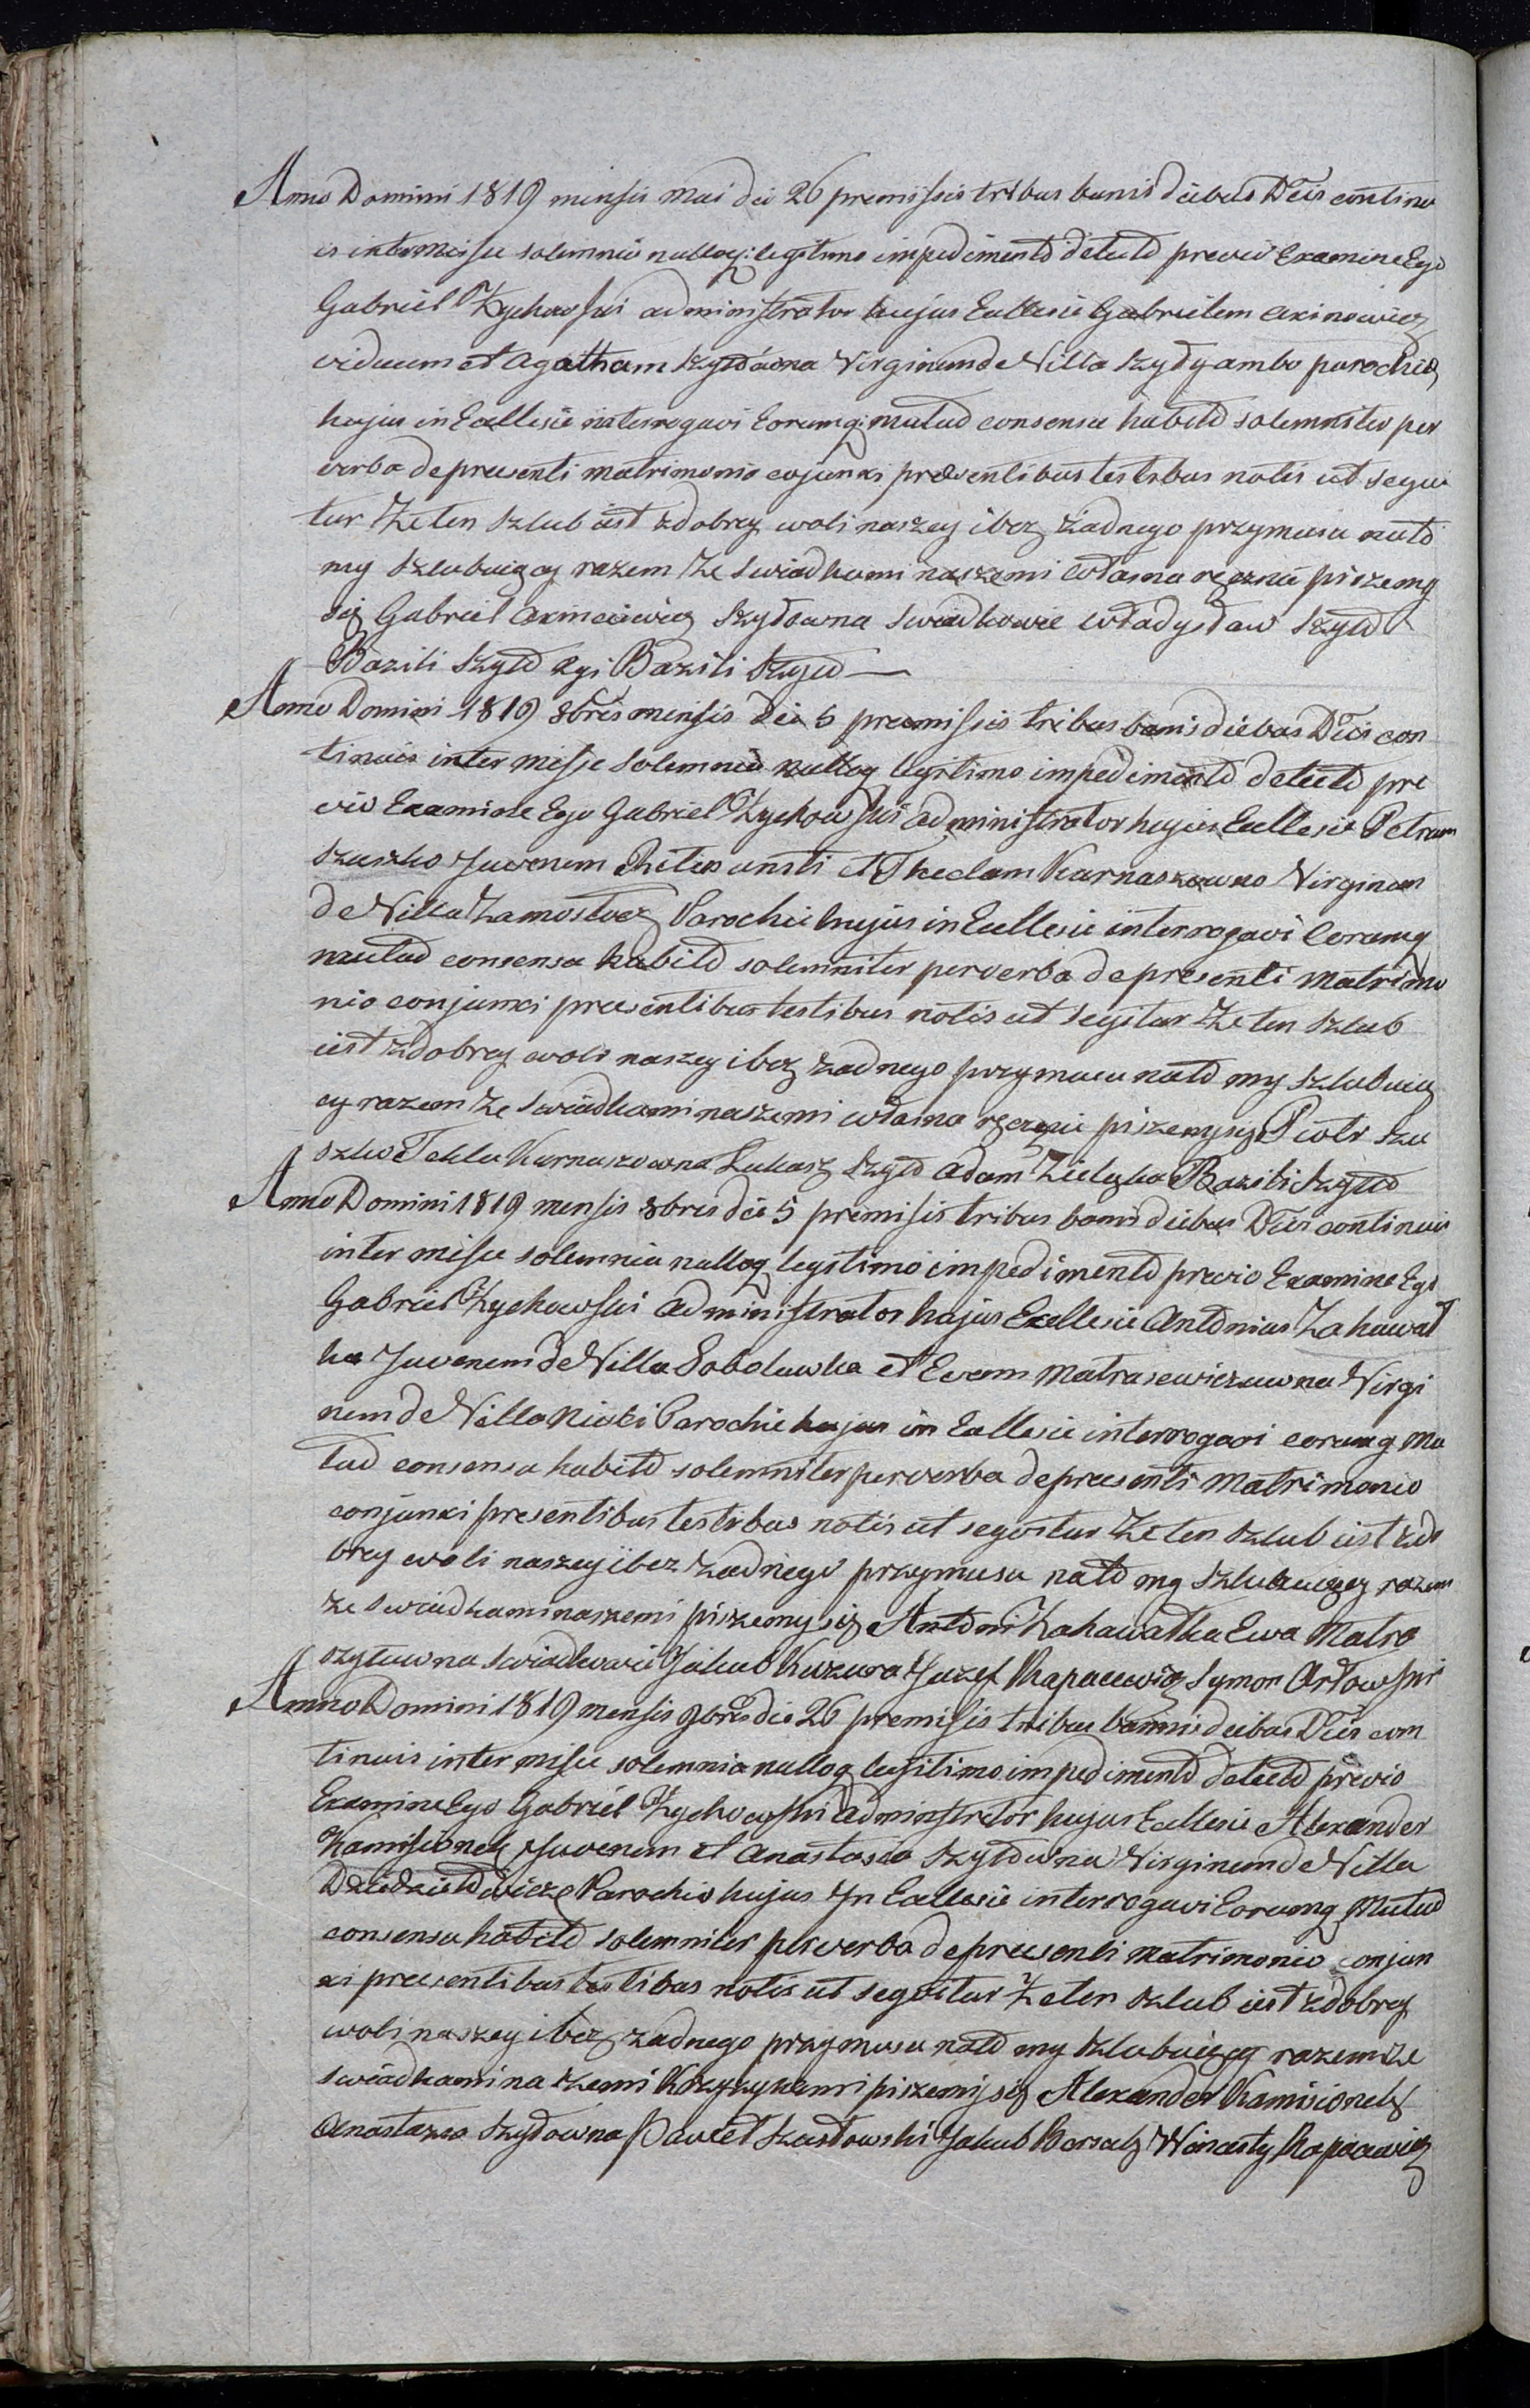 Anno Domini 1819 mensis Mai die 26 premissis tribus banis diebus Dtis continu
is inter Missae solemnia nulloq: legitimo impedimento detecto previo Examine Ego
Gabriel Zychowski administrator hujus Ecclesie Gabrielem Axinowicz
viduum et Agatham Szydtowna Virginem de Villa Szydy ambo parochie
hujus in Ecclesie interrogavi Eorumq: mutuo consensu habito solemniter per
verba de presenti matrimonio cojunxi presentibus testibus notis ut sequi
tur Ze ten Szlub iest zdobrey woli naszey i bez żadnego przymusu nato
my Szlubuięcy razem Ze swiadkami naszemi własna ręcznie piszemy
się Gabriel Szydowna Swiadkowie Władysław Szyto
Bazili Szyto Bazili Szyto
Anno Domini 1819 8bris mensis die 5 premissis tribus banis diebus Dtis con
tinuis inter missae Solemnia nulloq legitimo impedimento detecto pre
vio Examine Ego Gabriel Zychowski administrator hujus Ecclesie Petrum
Szuszko Juvenem et Theclam Karnaszowno Virginem
de Villa Zamostocz Parochie hujus in Ecclesie interrogavi Eorumq
mutuo consensu habito solemniter per verba de presenti Matrimo
nio conjunxi presentibus testibus notis ut segitur Ze ten Szlub
iest zdobrey woli naszey i bez żadnego przymusu nato my szlubuię
cy razem Ze Swiadkami naszemi własna ręcznie piszemysię Piotr Szu
szko Tekla Karnaszowna Łukasz Szyto Adam Bazili Szyto
Anno Domini 1819 mensis 8bris die 5 premisis tribus banis diebus Dtis continuis
inter misse solemnia nulloq legitimo impedimento previo Examine Ego
Gabriel Zychowski administrator hujus Ecclesie Antonius Zahawat
ka Juvenem de Villa Sobolowka et Evam Matrasewiczuwna Virgi
nem de Villa Niwki Parochie hujus in Ecclesie interrogavi eorumq Mu
tuo consensu habito solemniter per verba de presenti Matrimonio
conjunxi presentibus testibus notis ut segvitur Ze ten Szlub iest zdo
brey woli naszey i bez żadnego przymusu nato my Szlubuięcy razem
ze swiadkami naszemi piszemy się Antoni Zahawatka Ewa Matra
szyłuwna swiadkowie Jakub Kuzura Juzef Rapacewicz Symon Orłowski
Anno Domini 1819 mensis 9bris die 26 premisis tribus bannis diebus Dtis con
tinuis inter misse solemnia nulloq legitimo impedimento detecto previo
Examine Ego Gabriel Zychowski Administrator hujus Ecclesie Alexander
Kamisionek Juvenem et Anastasio Szydowna Virginem de Villa
Parochie hujus In Ecclesie interrogavi Eorumq Mutuo
consensu habito solemniter per verba de presenti Matrimonio conjun
xi presentibus testibus notis ut segvitur Ze ten Szlub iest zdobrey
woli naszey i bez żadnego przymusu nato my Szlubuięcy razem ze
swiadkami naszemi Krzyzykami piszemy się Alexander Kamisionek
Anastazia Szydowna Paweł Szasłowski Jakub Wincenty Rapacewicz